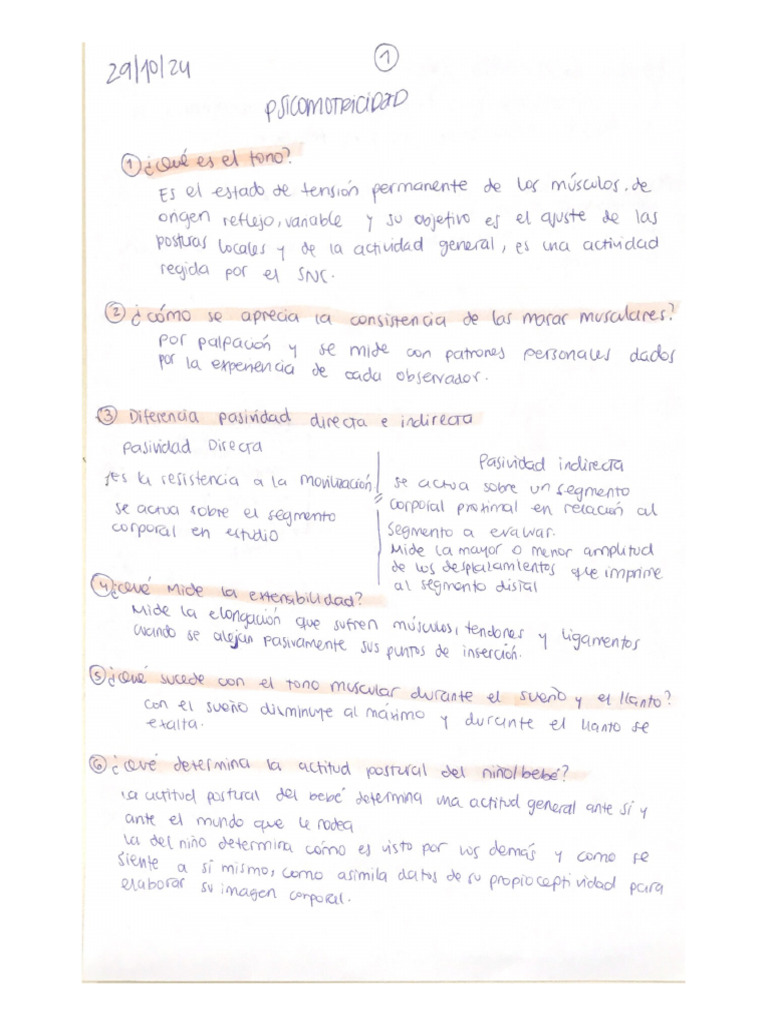 29/10/24
1
PSICOMOTRICIDAD
1 ¿Qué es el tono?
Es el estado de tensión permanente de los músculos. de
origen reflejo, variable y su objetivo es el ajuste de las
posturas locales y de la actividad general, es una actividad
regida por el SNC.
2 ¿cómo se aprecia la consistencia de las masas musculares?
por palpación y se mide con patrones personales dados
por la experiencia de cada observador.
3 Diferencia pasividad directa e indirecta
pasividad Directa
es la resistencia a la movilización
se actua sobre el segmento
corporal en estudio
Pasividad indirecta
se actua sobre un segmento
corporal proximal en relación al
segmento a evaluar.
Mide la mayor o menor amplitud
de los desplazamientos que imprime
al segmento distal
4 ¿Qué mide la extensibilidad?
Mide la elongación que sufren músculos, tendones y ligamentos
cuando se alejan pasivamente sus puntos de inserción.
5 ¿Qué sucede con el tono muscular durante el sueño y el llanto?
con el sueño disminuye al máximo y durante el llanto se
exalta.
6 ¿Qué determina la actitud postural del niño/bebé?
la actitud postural del bebé determina una actitud general ante sí y
ante el mundo que le rodea
la del niño determina cómo es visto por los demás y como se
siente a sí mismo, como asimila datos de su propioceptividad para
elaborar su imagen corporal.